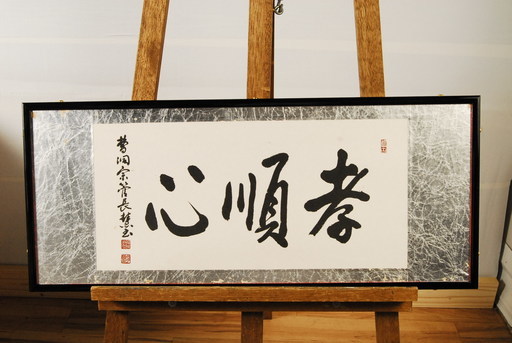 孝順心
曹洞宗管長慧玉